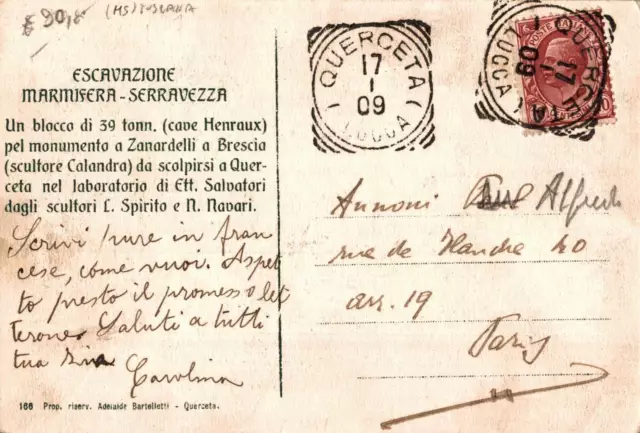 € 90,=
(MS) TOSCANA
ESCAVAZIONE
MARMIFERA - SERRAVEZZA
Un blocco di 39 tonn. (cave Henraux)
pel monumento a Zanardelli a Brescia
(scultore Calandra) da scolpirsi a Quer-
ceta nel laboratorio di Ett. Salvatori
dagli scultori L. Spirito e N. Navari.
Scrivi pure in fran
cese, come vuoi. Aspet
to presto il promesso let
terone Saluti a tutti
tua
Carolina
166 Prop. riserv. Adelaide Bartelletti - Querceta.
QUERCETA
17
1
09
LUCCA
QUERCETA
17
1
09
LUCCA
POSTE ITALIANE
Annoni Alfredo
rue de Flandre 40
arr. 19
Paris